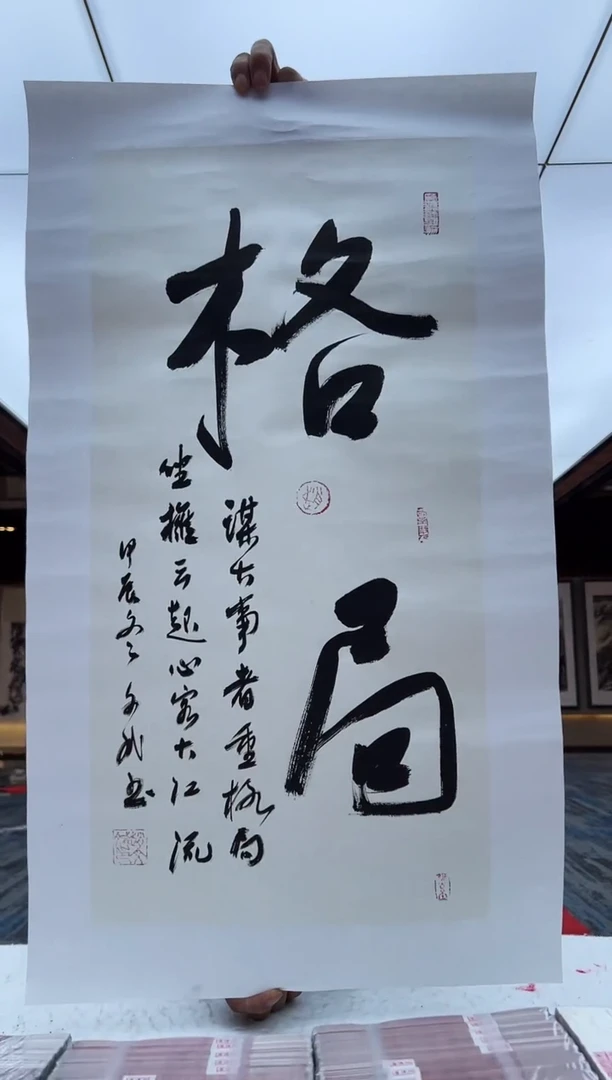 格局
谋大事者重格局
坐拥云起心容大江流
甲辰冬
书